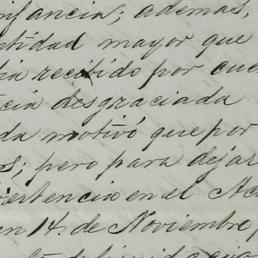 infancia; ademas,
ntidad mayor que
bia recibido por cue
cia desgraciada
da motivó que por
s; pero para dejar
vertencia en el Ac
en 14 de Noviembre